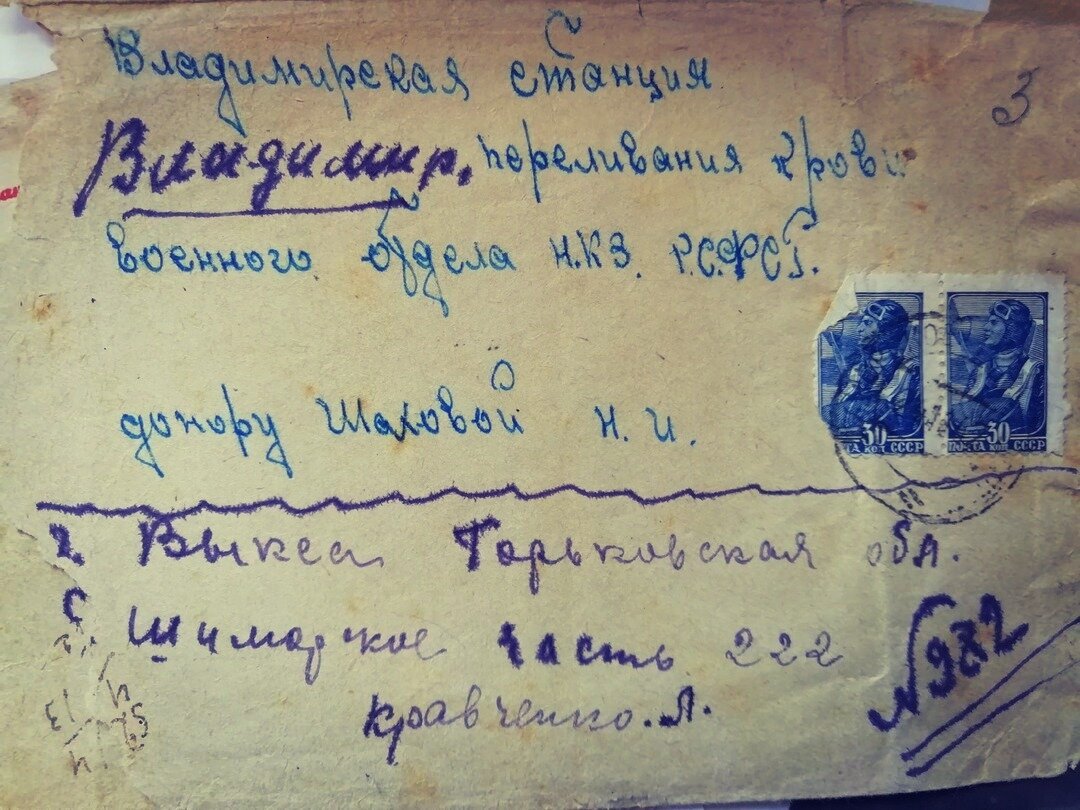 Владимирская станция
3
Владимир, переливания крови
военного отдела Н.К.З. Р.С.Ф.С.Р.
донору Шаховой Н. И.
30 30
ПОЧТА КОП. СССР
г. Выкса Горьковская обл.
с. Шиморское часть 222
№ 982
Кравченко. Л.